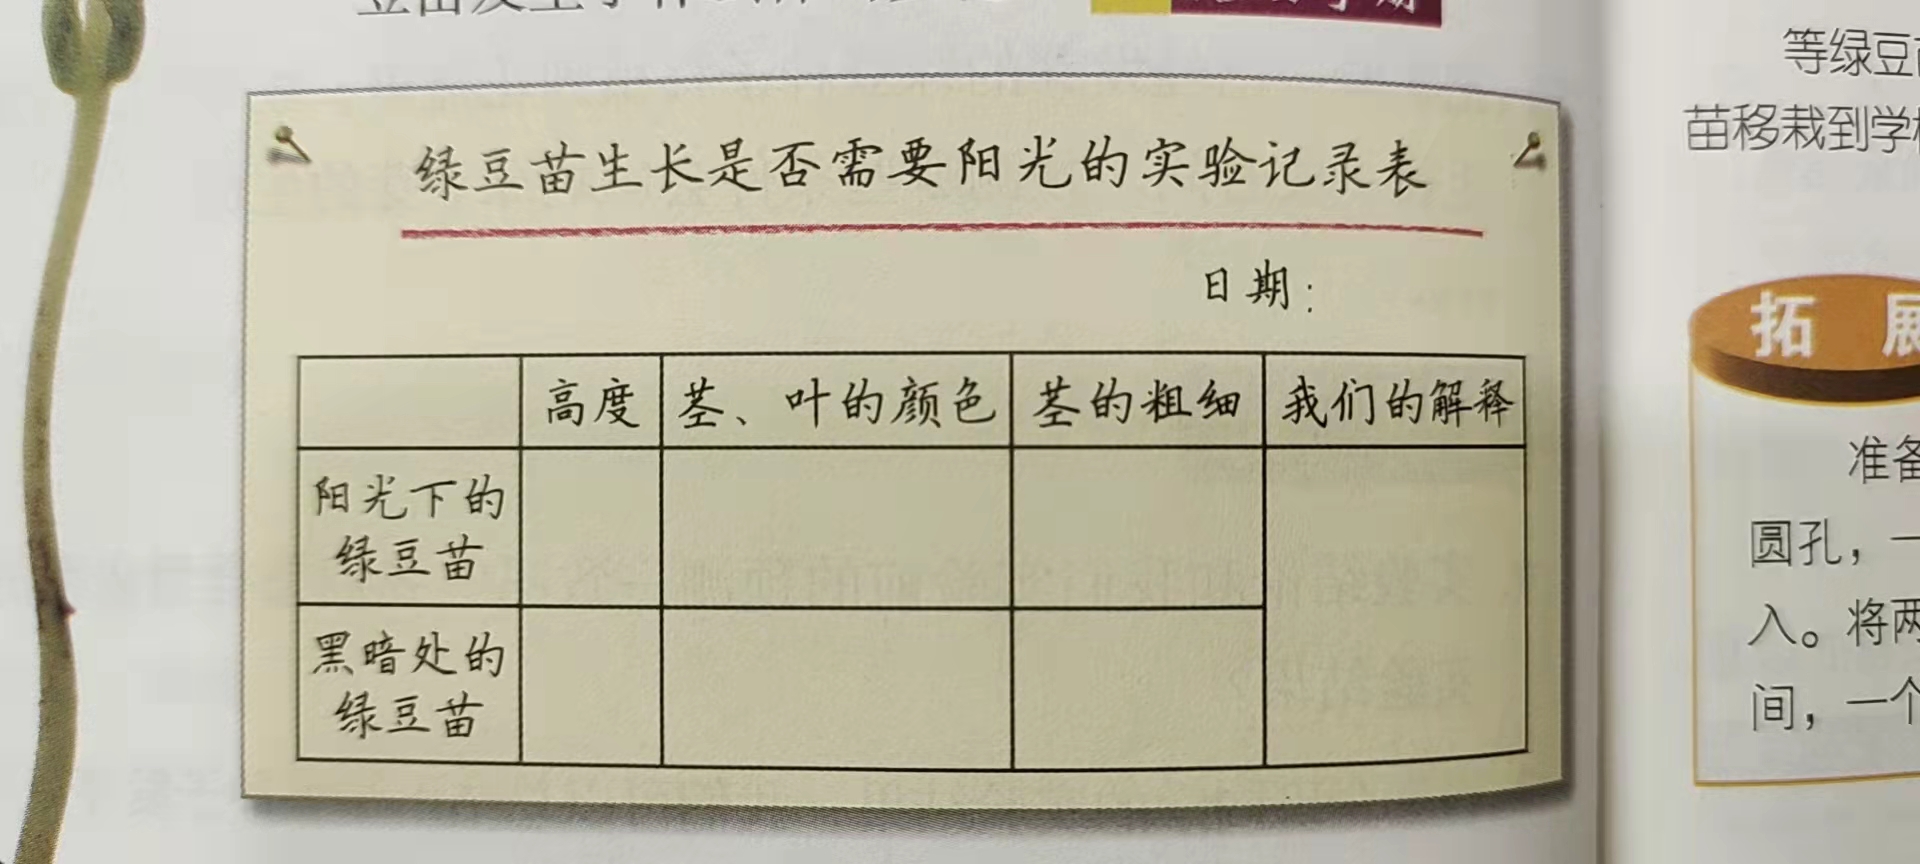 绿豆苗生长是否需要阳光的实验记录表
日期：
高度 茎、叶的颜色 茎的粗细 我们的解释
阳光下的
绿豆苗
黑暗处的
绿豆苗
等绿豆
苗移栽到学
拓 展
准备
圆孔，一
入。将两
间，一个